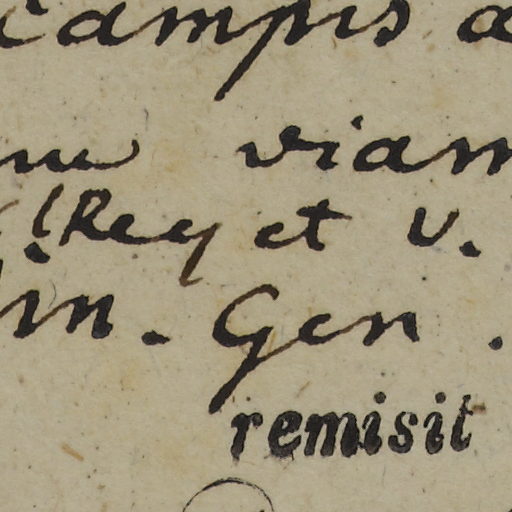 campis a
viam
(Rey et V.
in. Gen.
remisit